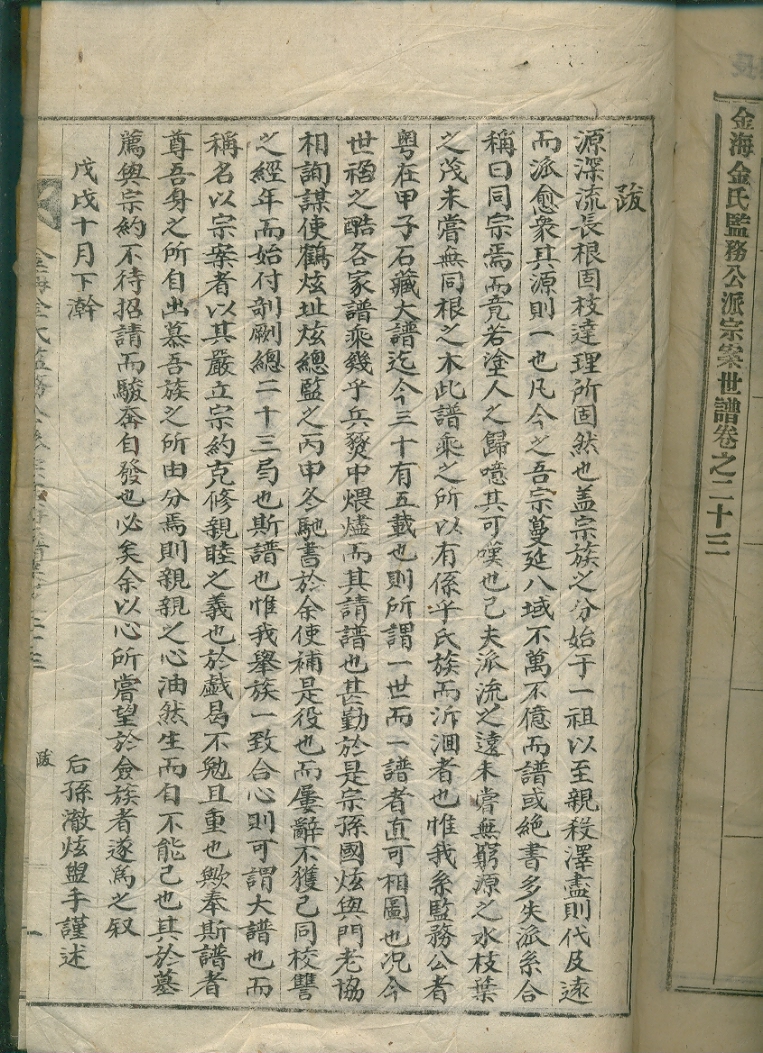 金海金氏監務公派宗案世譜卷之二十三
跋
源深流長根固枝達理所固然也盖宗族之分始于一祖以至親殺澤盡則代及遠
而派愈衆其源則一也凡今之吾宗蔓延八域不萬不億而譜或絶書多失派系合
稱曰同宗焉而竟若塗人之歸噫其可嘆也已夫派流之遠未嘗無窮源之水枝葉
之茂未嘗無同根之木此譜乘之所以有係乎氏族而泝洄者也惟我系監務公者
粤在甲子石藏大譜迄今三十有五載也則所謂一世而一譜者直可相圖也况今
世禍之酷各家譜乘幾乎兵燹中煨燼而其請譜也甚勤於是宗孫國炫與門老協
相詢謀使鶴炫址炫總監之丙申冬馳書於余使補是役也而屢辭不獲已同校讐
之經年而始付剞劂總二十三局也斯譜也惟我舉族一致合心則可謂大譜也而
稱名以宗案者以其嚴立宗約克修親睦之義也於戱曷不勉且重也歟奉斯譜者
尊吾身之所自出慕吾族之所由分焉則親親之心油然生而自不能已也其於墓
薦與宗約不待招請而駿奔自發也必矣余以心所嘗望於僉族者遂爲之叙
戊戌十月下澣
后孫澈炫盥手謹述
跋
一